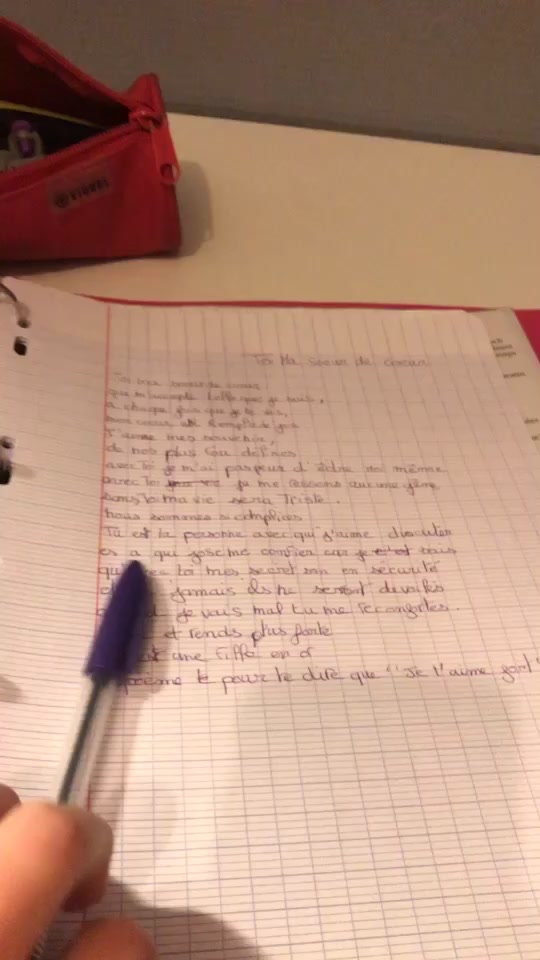 Toi Ma soeur de coeur
Toi ma soeur de coeur
que m'accepte telle que je suis,
a chaque fois que je te vois,
mon coeur est remplie de joie
J'aime mes souvenirs,
de nos plus fou délires
avec toi je m'ai pas peur d'être moi même
avec toi je me ressens aucune gêne
sans toi ma vie sera Triste.
nous sommes si complices
Tu est la personne avec qui j'aime discuter
es a qui j'ose me confier car je sais
toi mes secret son en sécurité
jamais ils ne seront dévoilés
je vais mal tu me réconfortes.
et rends plus forte
une fille en or
poème pour te dire que "Je t'aime fort"